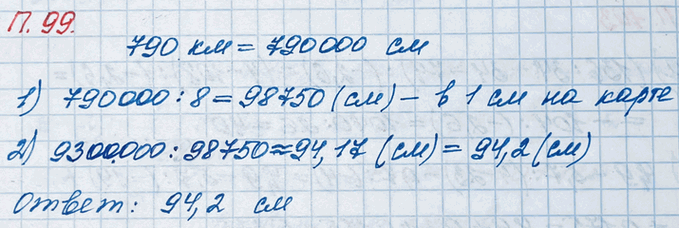 П. 99.
790 км = 790000 см
1) 790000 : 8 = 98750 (см) – в 1 см на карте
2) 9300000 : 98750 ≈ 94,17 (см) = 94,2 (см)
Ответ: 94,2 см